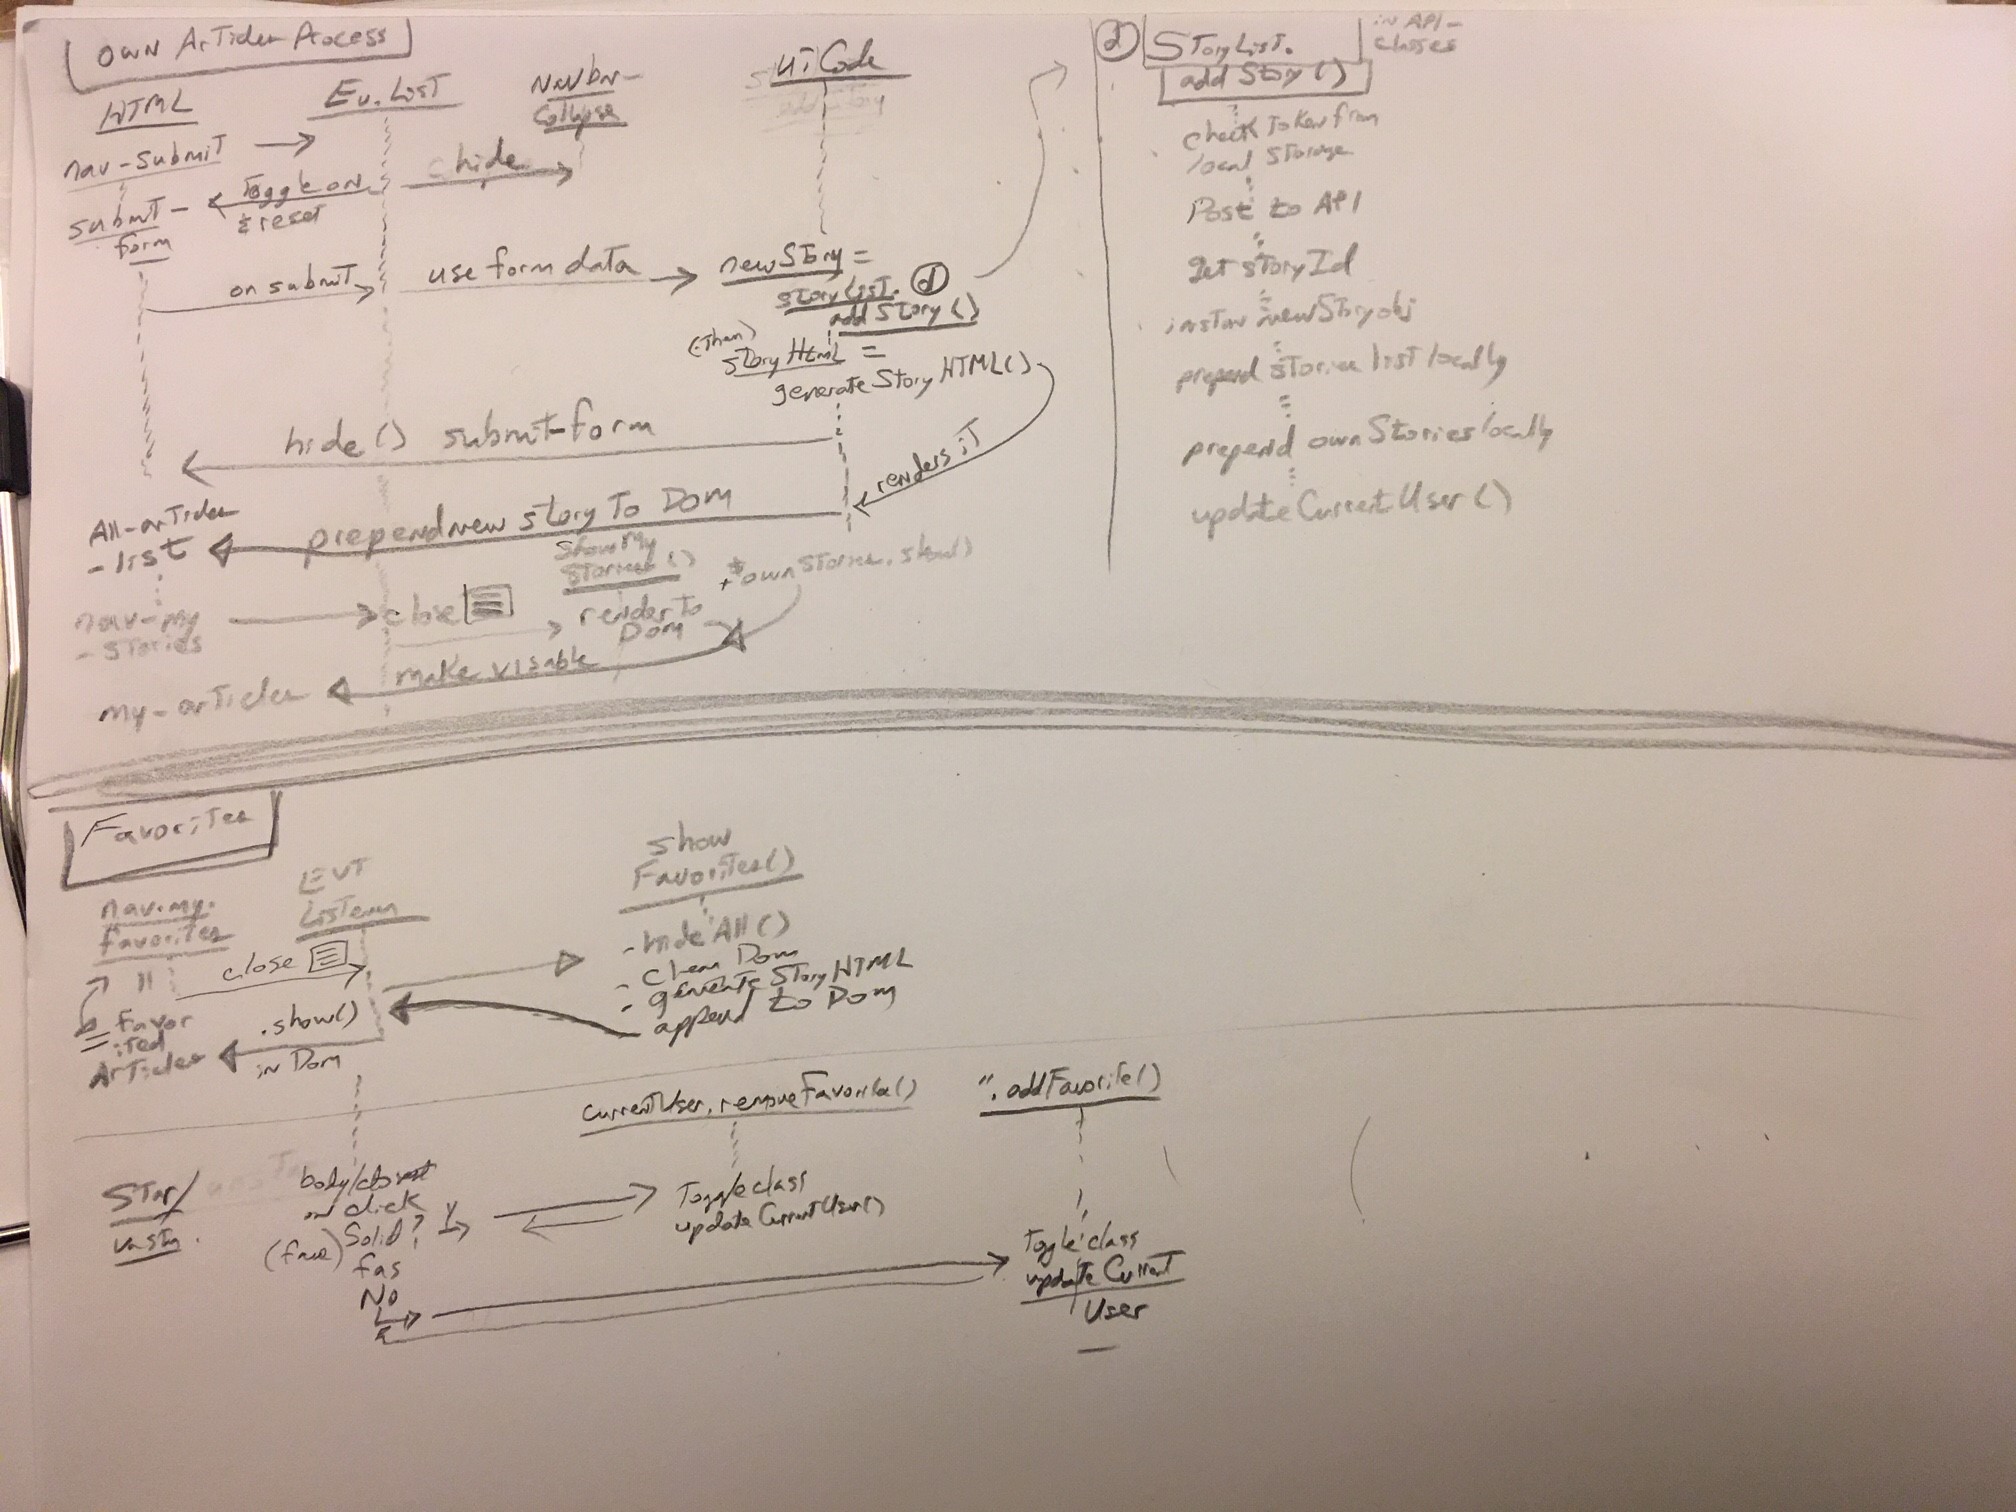 Own Articles Process
HTML
Ev. List
NavBar-
Collapse
UiCode
nav-submit
hide
Toggle on
& reset
submit-
form
on submit
use form data
newStory =
storyList.
addStory()
(Then)
storyHtml =
generateStoryHTML()
renders iT
hide() submit-form
prepend new story To Dom
All-articles
-list
nav-my
-stories
close
showMy
Stories()
render To
Dom
+ $ownStories.show()
make visable
my-articles
StoryList.
addStory()
in API-
classes
check Token from
local Storage
Post to API
get storyId
instan newStory obj
prepend stories list locally
prepend ownStories locally
updateCurrentUser()
Favorites
nav.my.
favorites
EVT
Listener
show
Favorites()
close
- hideAll()
- clean Dom
- generate StoryHTML
append to Dom
Favor
ited
Articles
.show()
in Dom
currentUser.removeFavorite()
".addFavorite()
Star/
body/closest
on click
Solid? Y
fas
No
Toggle class
updateCurrentUser()
Toggle class
update Current
User